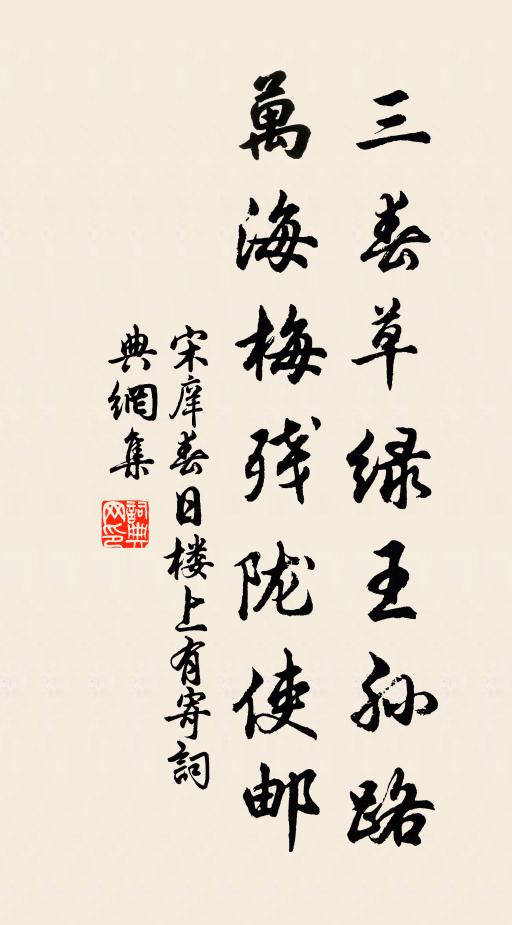 三春草绿王孙路
萬海梅残陇使邮
宋庠春日楼上有寄詞
典網集
詞典
网印